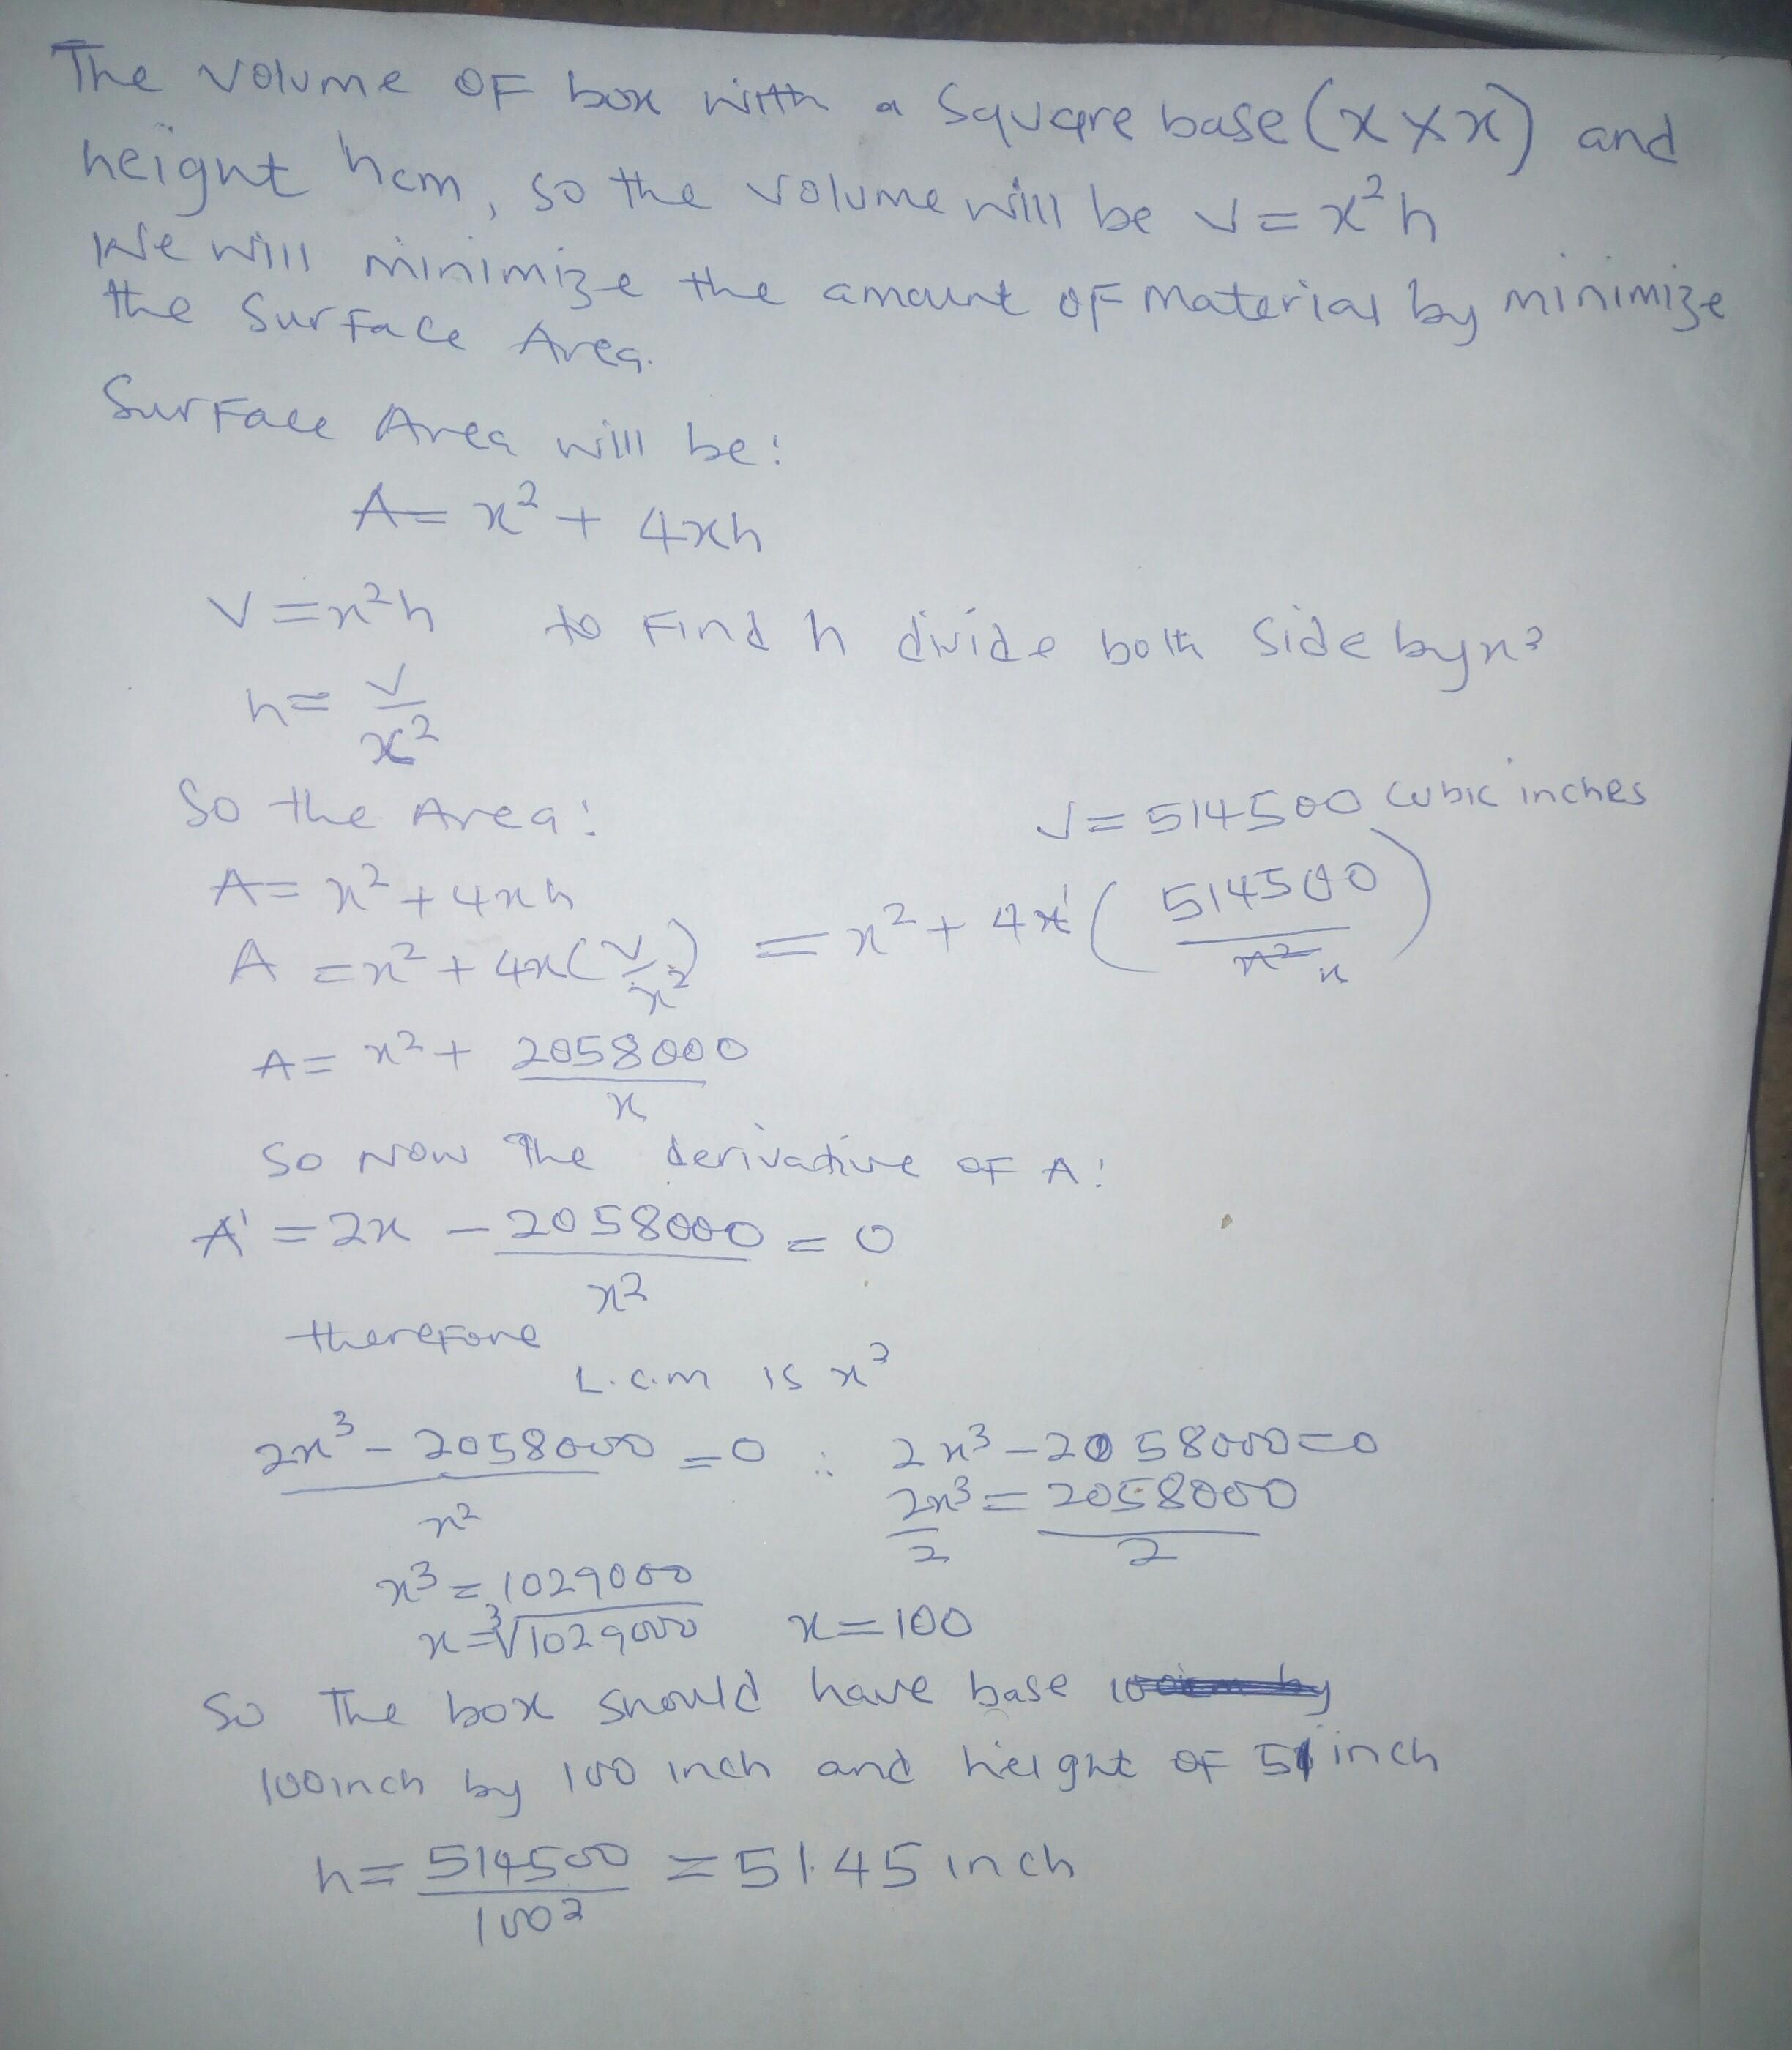 The volume OF box with a Square base (x × x) and
height hcm, so the volume will be V = x²h
We will minimize the amount of material by minimize
the Surface Area.
Surface Area will be:
A = x² + 4xh
V = x²h to Find h divide both Side by x²
h = V/x²
So the Area: V = 514500 cubic inches
A = x² + 4xh
A = x² + 4x(V/x²) = x² + 4x(514500/x²) x
A = x² + 2058000/x
So Now The derivative OF A:
A' = 2x - 2058000/x² = 0
therefore
L.c.m is x³
(2x³ - 2058000)/x² = 0 ∴ 2x³ - 2058000 = 0
2x³/2 = 2058000/2
x³ = 1029000
x = ³√1029000 x = 100
So The box should have base
100inch by 100 inch and height OF 51 inch
h = 514500/100² = 51.45 inch